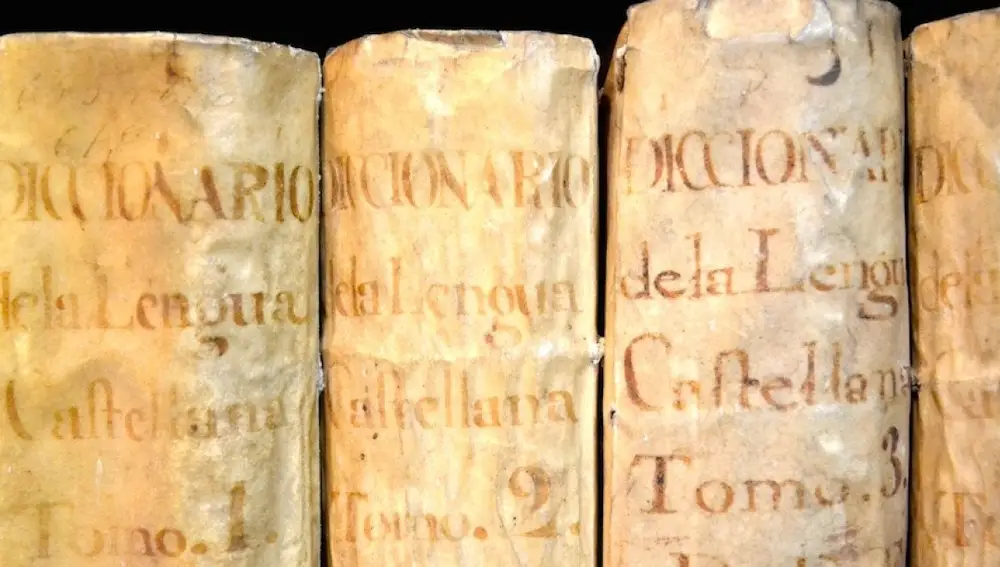 DICCIONARIO
de la Lengua
Caſtellana
Tomo. 1.
DICCIONARIO
de la Lengua
Caſtellana
Tomo. 2.
DICCIONARI
de la Lengu
Caſtellana
Tomo. 3.
DICC
de la
Caſ
T